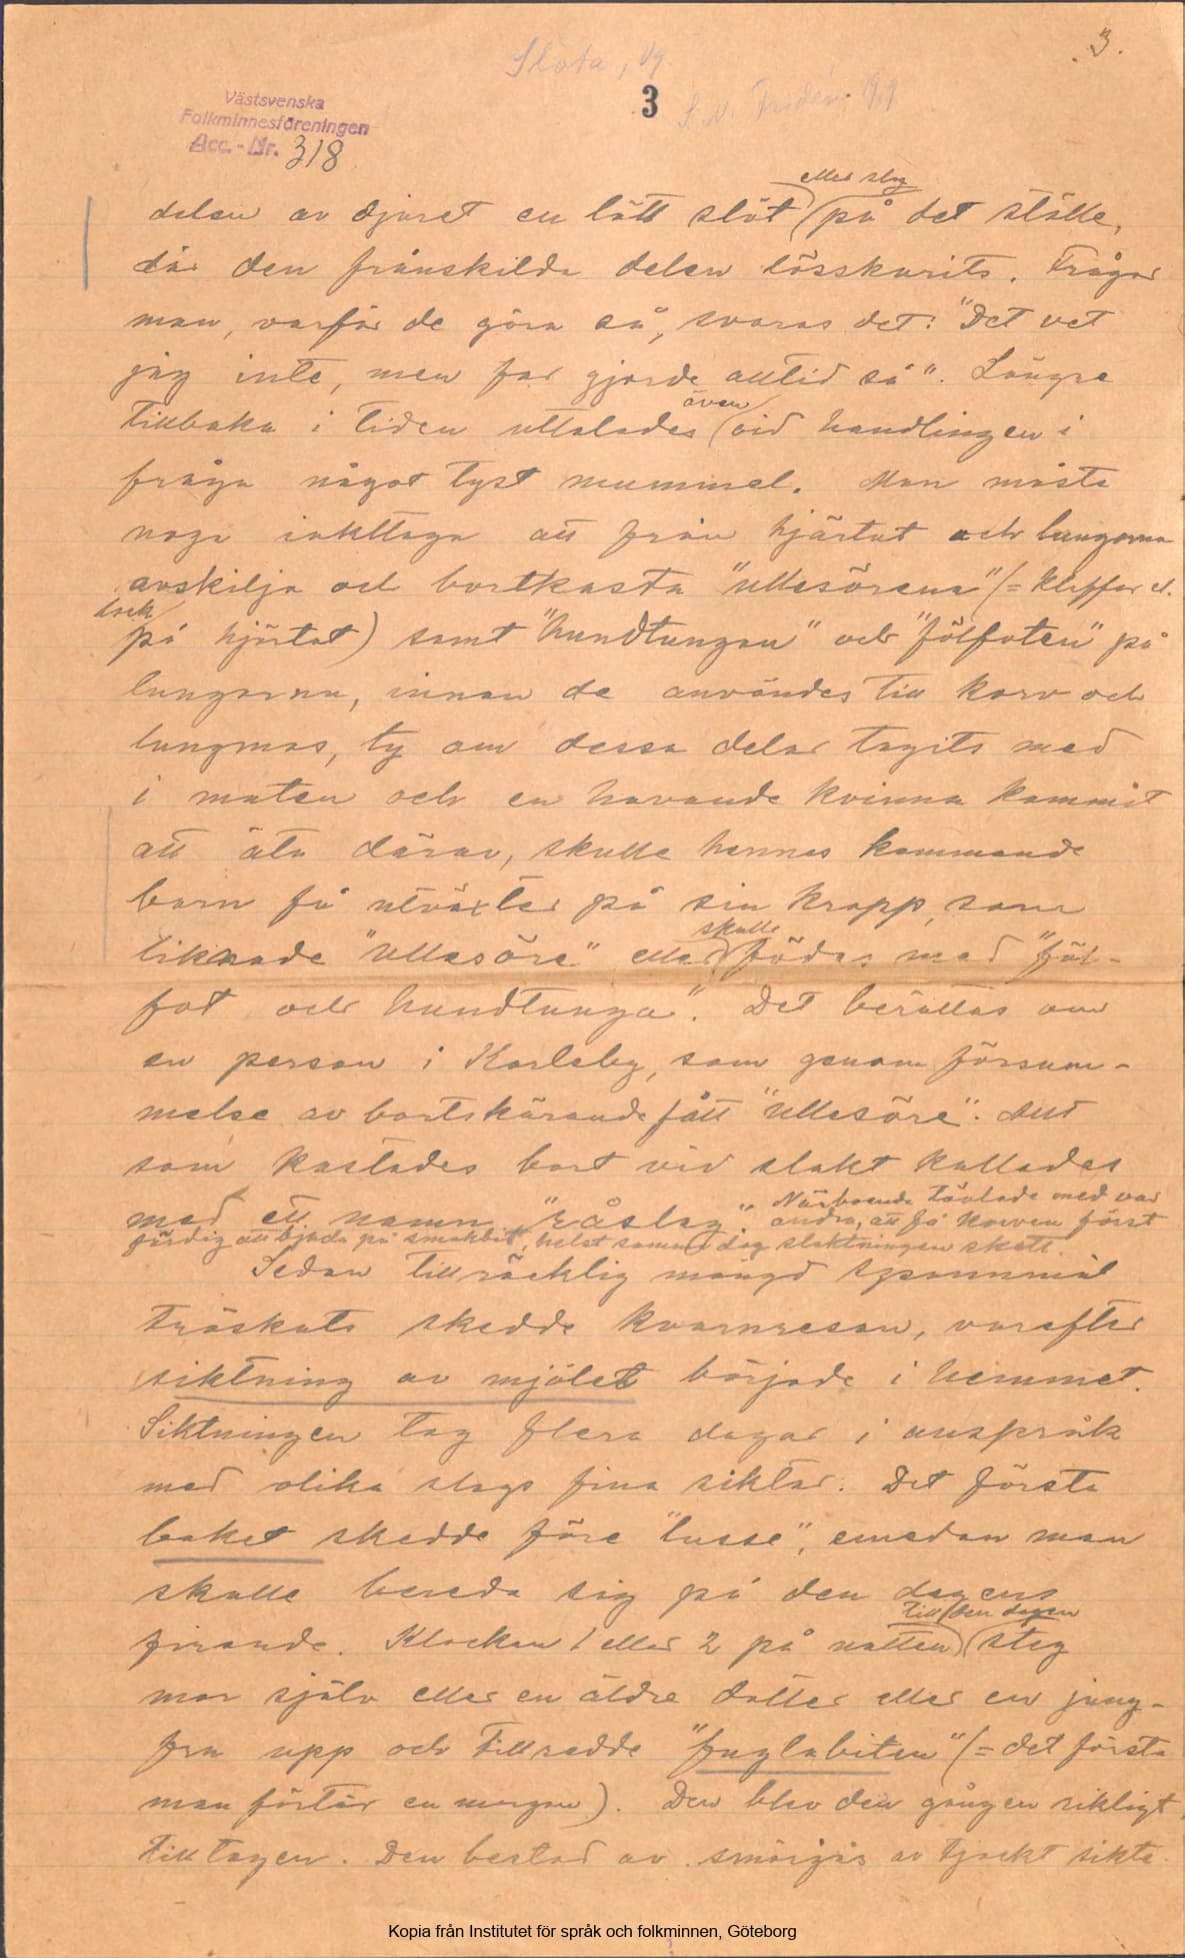 3.
Slöta, Vg.
3 S. N. Fridén. 1919
Västsvenska
Folkminnesföreningen
Acc. - Nr. 318
eller slag
delen av djuret en lätt stöt på det ställe,
där den frånskilda delen lösskurits. Frågar
man, varför de göra så, svaras det: "Det vet
jag inte, men far gjorde alltid så". Längre
även
tillbaka i tiden uttalades vid handlingen i
fråga något tyst mummel. Man måste
noga iakttaga att från hjärtat och lungorna
avskilja och bortkasta "ullasörena" (= kläffar el.
lock
på hjärtat) samt "hundtungan" och "fölfoten" på
lungorna, innan de användes till korv och
lungmos, ty om dessa delar tagits med
i maten och en havande kvinna kommit
att äta därav, skulle hennes kommande
barn få utväxter på sin kropp, som
skulle
liknade "ullasöre" eller födas med "föl-
fot och hundtunga". Det berättas om
en person i Karleby, som genom försum-
melse av bortskärande fått "ullasöre". Allt
som kastades bort vid slakt kallades
med ett namn "råslag". Närboende tävlade med var
andra, att få korven först
färdig att bjuda på smakbit, helst samma dag slaktningen skett.
Sedan tillräcklig mängd spannmål
tröskats skedde kvarnresan, varefter
siktning av mjölet började i hemmet.
Siktningen tog flera dagar i anspråk
med olika slags fina siktar. Det första
baket skedde före "lusse", emedan man
skulle bereda sig på den dagens
till den dagen
firande. Klockan 1 eller 2 på natten steg
mor själv eller en äldre dotter eller en jung-
fru upp och tillredde "fuglabiten" (= det första
man förtär en morgon). Den blev den gången rikligt
tilltagen. Den bestod av smörgås av tjockt sikte-
Kopia från Institutet för språk och folkminnen, Göteborg